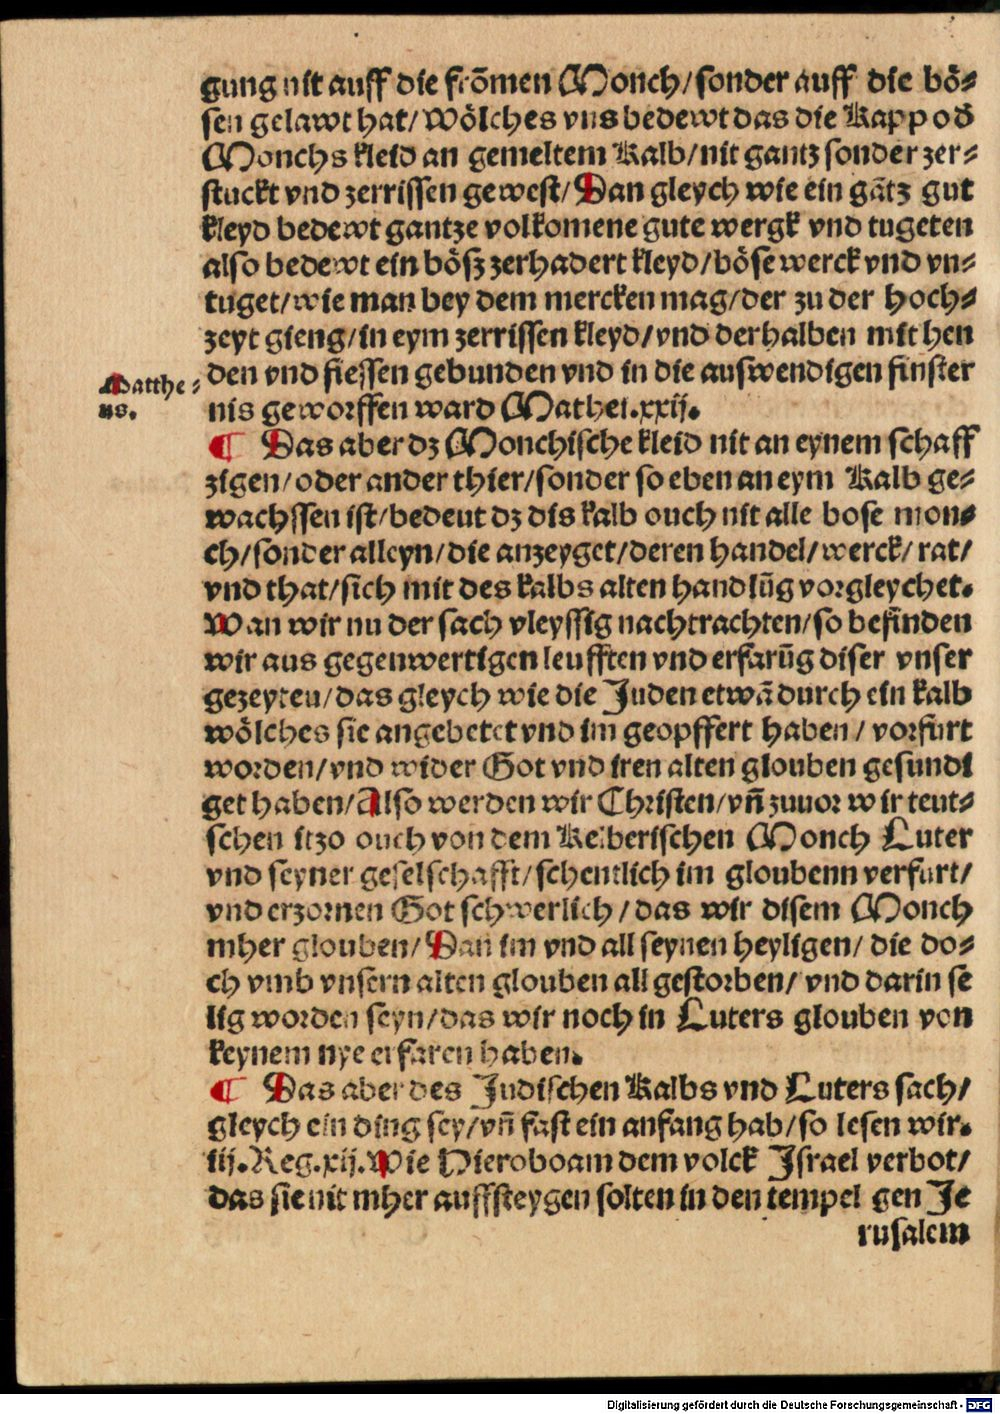 gung nit auff die frõmen Monch/sonder auff die bö⸗
sen gelawt hat/Wölches vns bedewt das die Kapp oď
Monchs kleid an gemeltem Kalb/nit gantz sonder zer⸗
stuckt vnd zerrissen gewest/Dan gleych wie ein gãtz gut
kleyd bedewt gantze volkomene gute wergk vnd tugeten
also bedewt ein bösz zerhadert kleyd/böse werck vnd vn⸗
tuget/wie man bey dem mercken mag/der zu der hoch⸗
zeyt gieng/in eym zerrissen kleyd/vnd derhalben mit hen
Matthe⸗
us.
den vnd fiessen gebunden vnd in die auswendigen finster
nis geworffen ward Mathei.xxij.
¶ Das aber dz Monchische kleid nit an eynem schaff
zigen/oder ander thier/sonder so eben an eym Kalb ge⸗
wachssen ist/bedeut dz dis kalb ouch nit alle bose mon⸗
ch/sonder alleyn/die anzeyget/deren handel/werck/rat/
vnd that/sich mit des kalbs alten handlũg vorgleychet.
Wan wir nu der sach vleyssig nachtrachten/so befinden
wir aus gegenwertigen leufften vnd erfarũg diser vnser
gezeyten/das gleych wie die Juden etwã durch ein kalb
wölches sie angebetet vnd im geopffert haben/vorfurt
worden/vnd wider Got vnd iren alten glouben gesundi
get haben/Also werden wir Christen/vñ zuuor wir teut⸗
schen itzo ouch von dem Kelberischen Monch Luter
vnd seyner geselschafft/schentlich im gloubenn verfurt/
vnd erzornen Got schwerlich/das wir disem Monch
mher glouben/Dan im vnd all seynen heyligen/die do⸗
ch vmb vnsern alten glouben all gestorben/vnd darin se
lig worden seyn/das wir noch in Luters glouben von
keynem nye erfaren haben.
¶ Das aber des Judischen Kalbs vnd Luters sach/
gleych ein ding sey/vñ fast ein anfang hab/so lesen wir.
iij.Reg.xij.Wie Hieroboam dem volck Israel verbot/
das sie nit mher auffsteygen solten in den tempel gen Je
rusalem
Digitalisierung gefördert durch die Deutsche Forschungsgemeinschaft - DFG